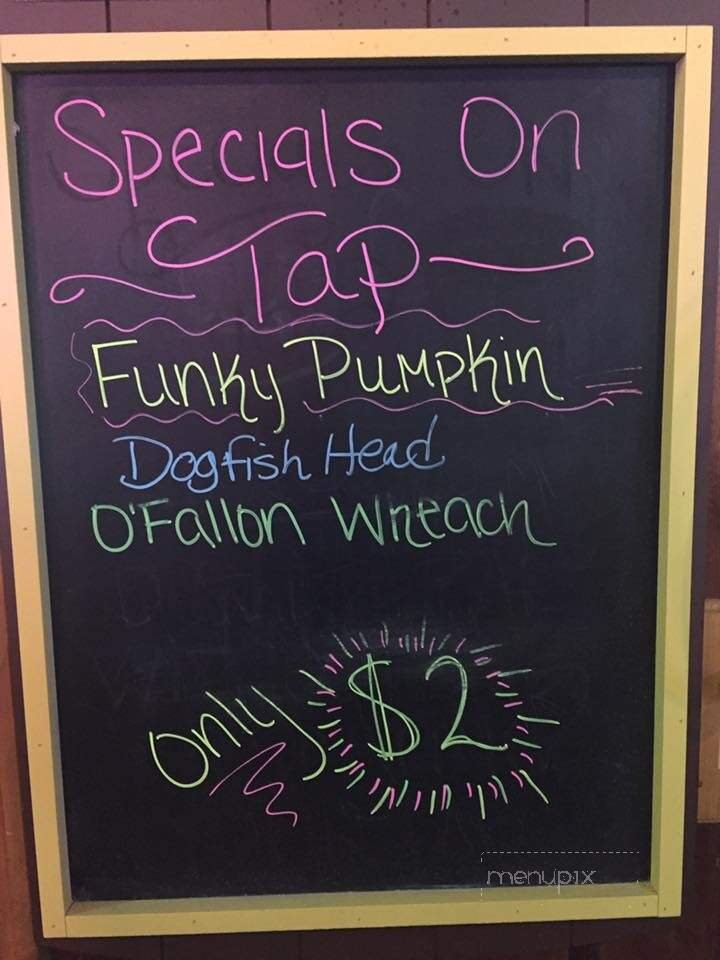 Specials On
Tap
Funky Pumpkin
Dogfish Head
O'Fallon Wheach
only $2
menupix